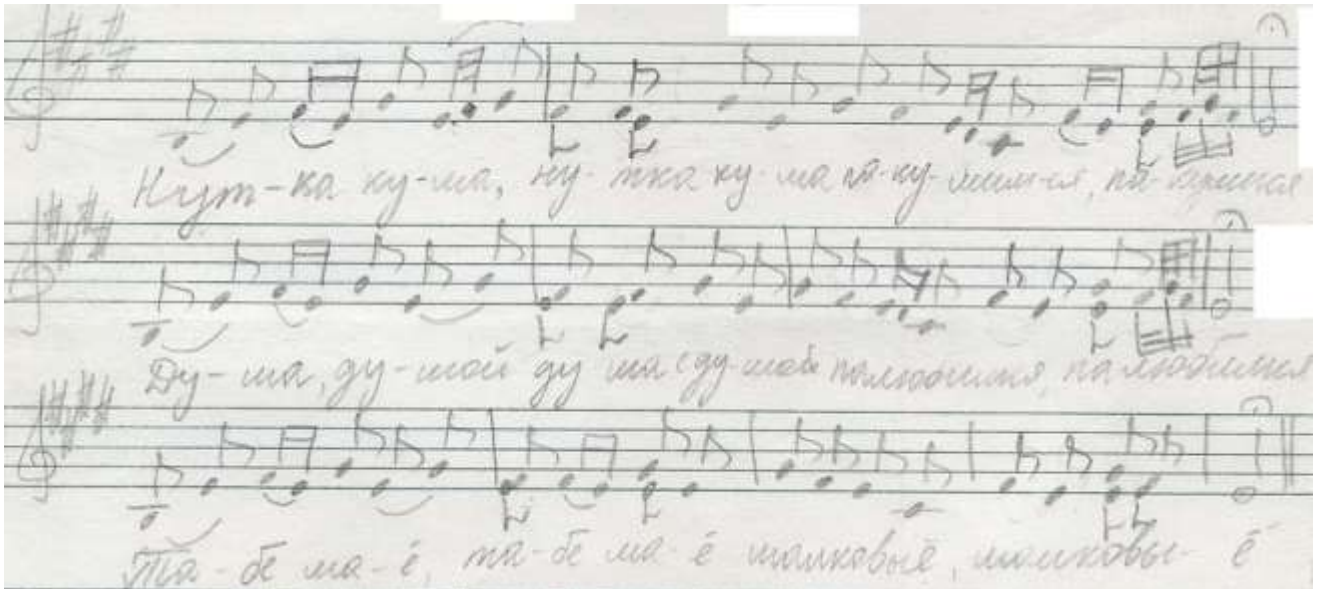 Нут-ка ку-ма, ну-тка ку-ма па-ку-мимся, па-кумимся
Ду-ша, ду-шой ду ша с ду-шой палюбимся, палюбимся
Та-бе ма-ё, та-бе ма-ё шалковыё, шалковы-ё